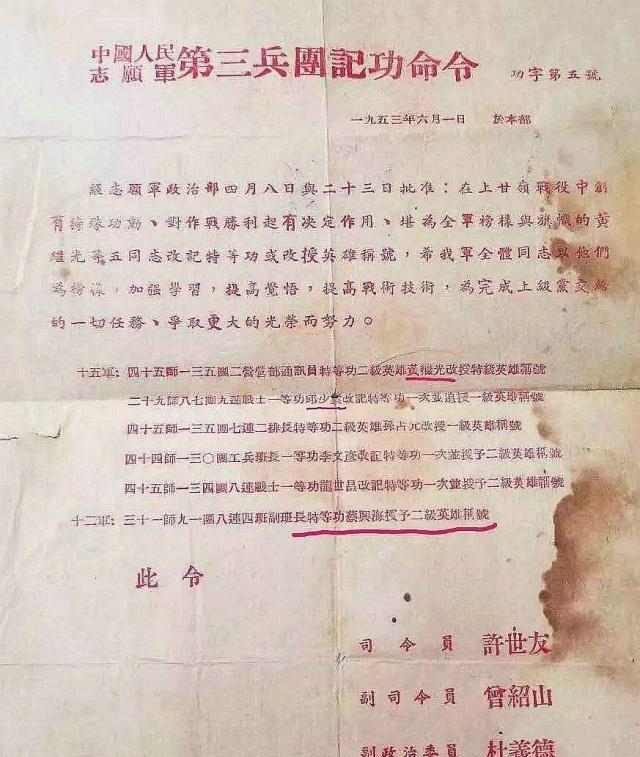 中國人民
志願軍 第三兵團記功命令 功字第五號
一九五三年六月一日 於本部
經志願軍政治部四月八日與二十三日批准：在上甘領戰役中創
有特殊功勳、對作戰勝利起有决定作用、堪為全軍榜樣與旗幟的黃
繼光等五同志改記特等功或改授英雄稱號，希我軍全體同志以他們
為榜樣，加强學習，提高覺悟，提高戰術技術，為完成上級黨交給
的一切任務、爭取更大的光榮而努力。
十五軍：四十五師一三五團二營營部通訊員特等功二級英雄黃繼光改授特級英雄稱號
二十九師八七團九連戰士一等功邱少雲改記特等功一次並追授一級英雄稱號
四十五師一三五團七連二排長特等功二級英雄孫占元改授一級英雄稱號
四十四師一三〇團工兵班長一等功李文彥改記特等功一次並授予二級英雄稱號
四十五師一三四團八連戰士一等功龍世昌改記特等功一次並授予二級英雄稱號
十二軍：三十一師九一團八連四班副班長特等功蔡興海授予二級英雄稱號
此令
司令員 許世友
副司令員 曾紹山
副政治委員 杜義德